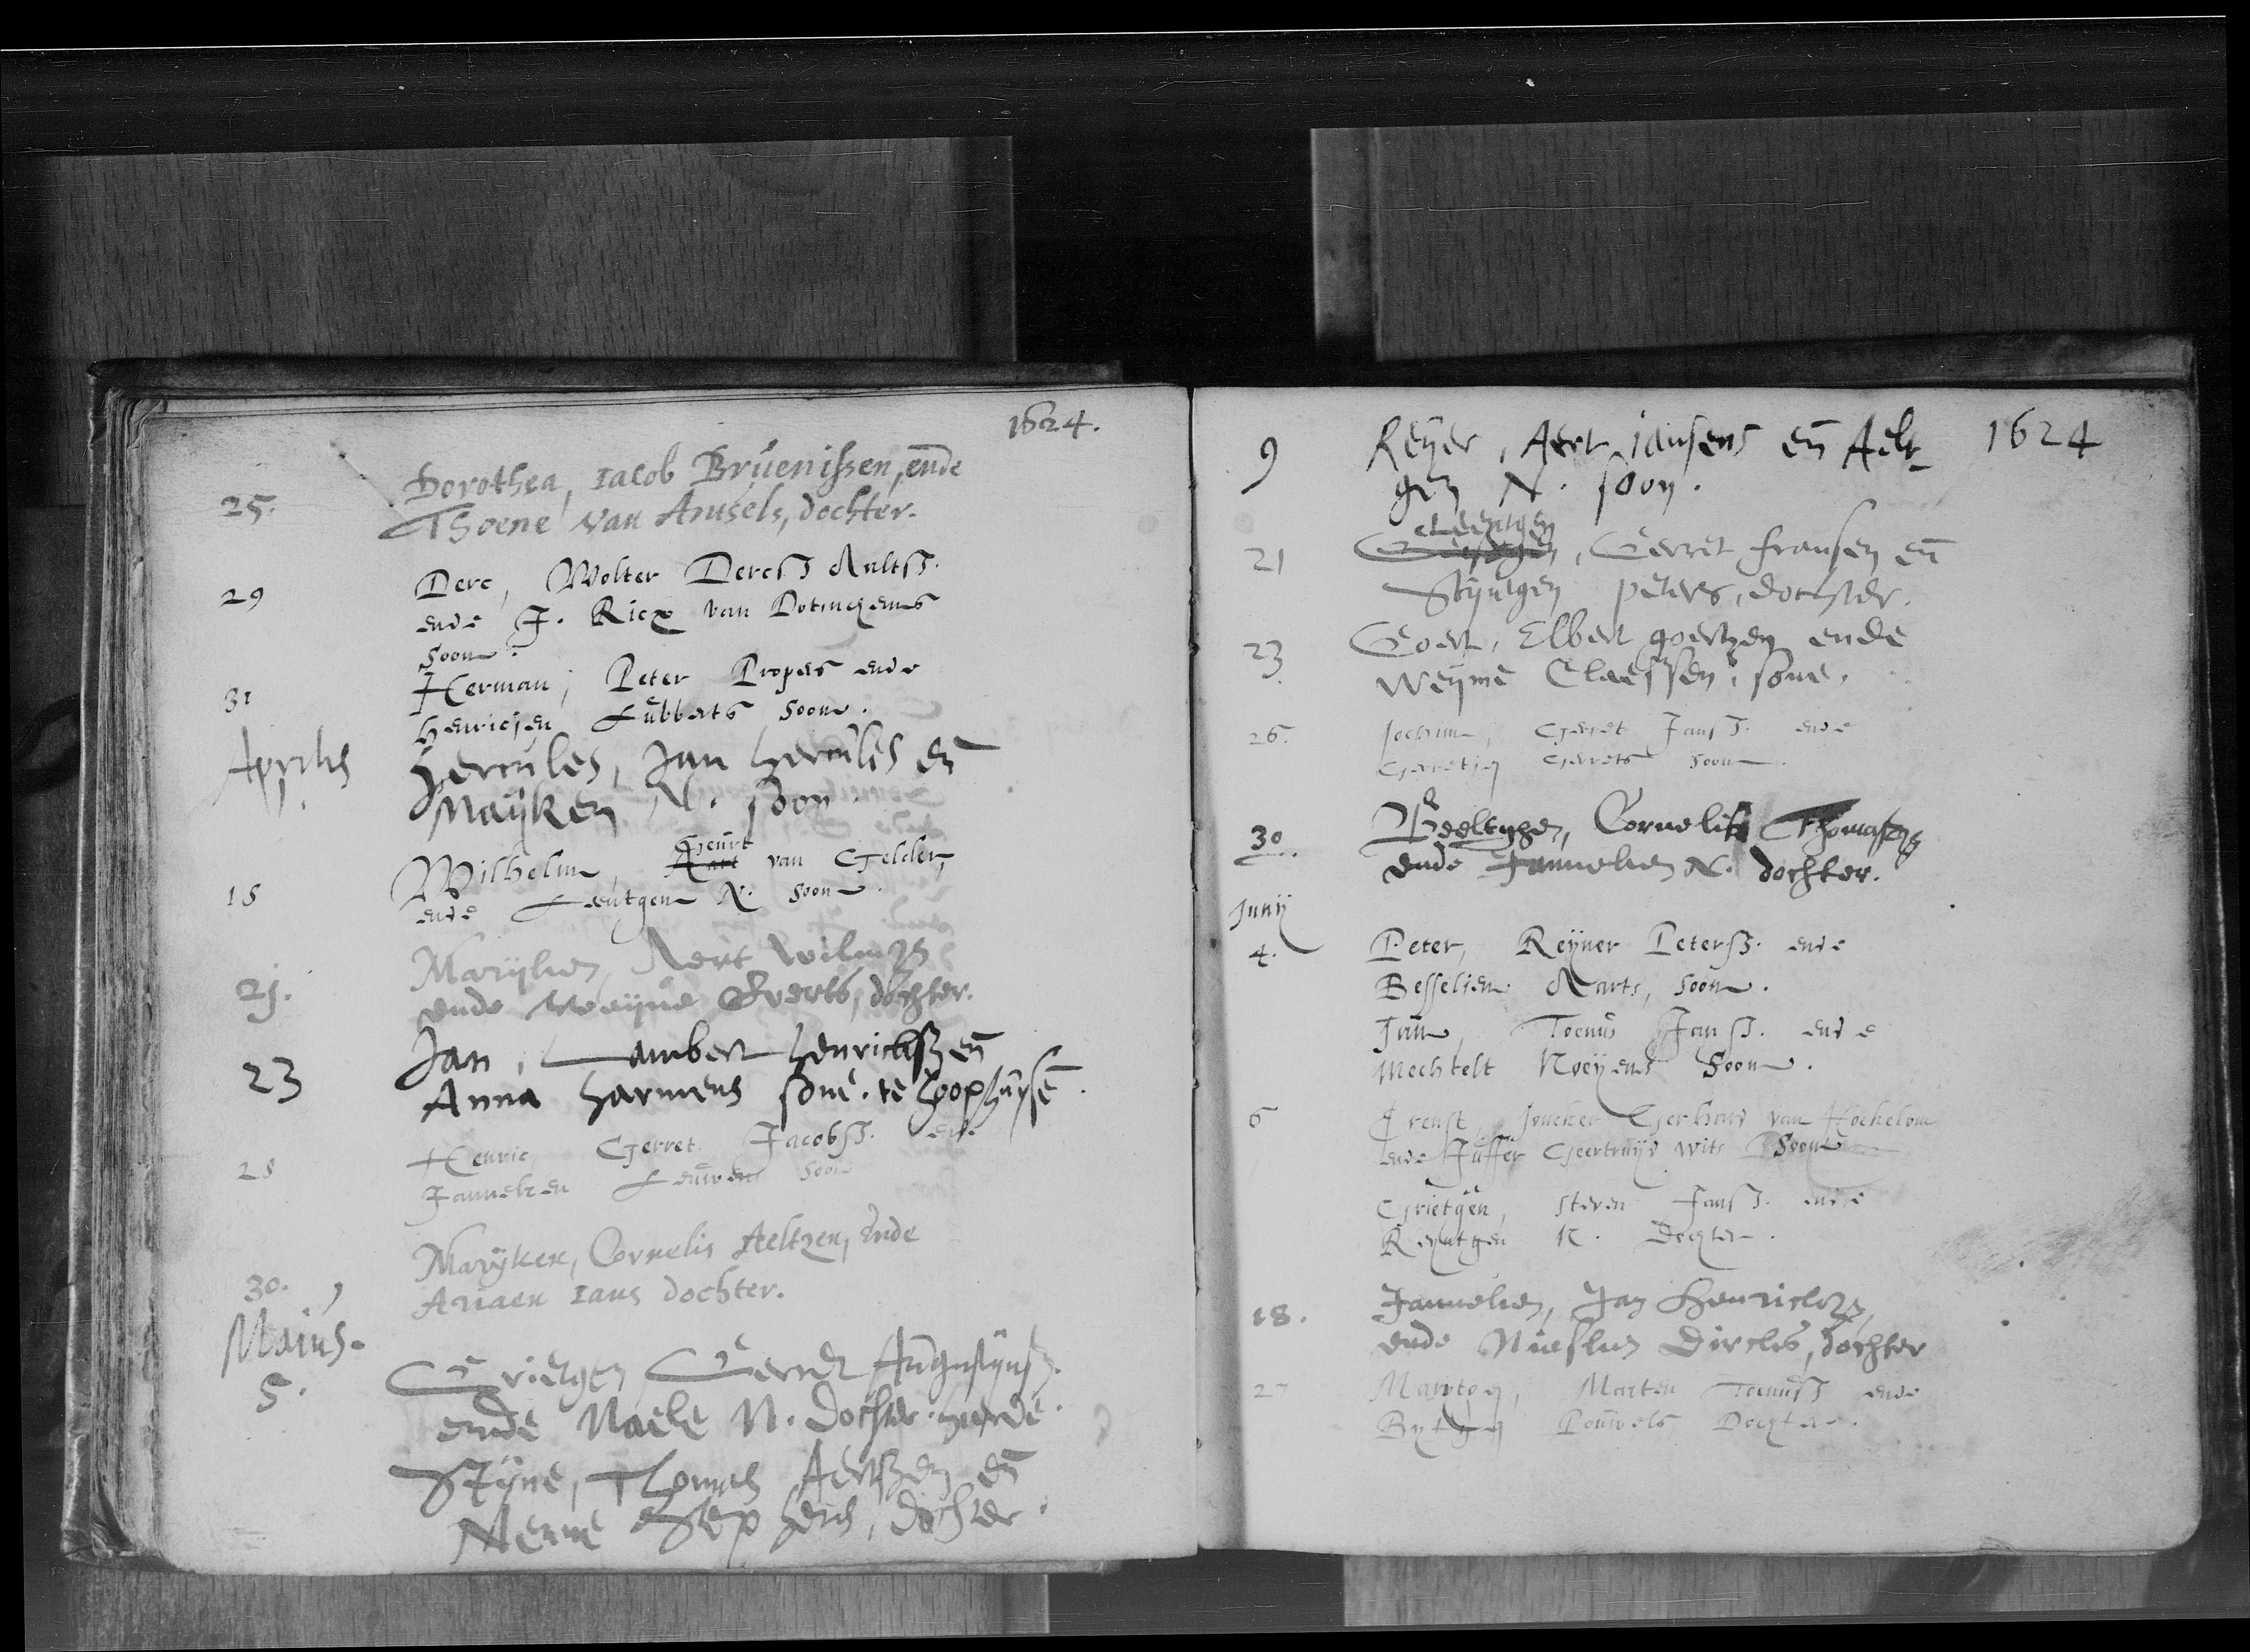 1624.
25. Dorothea, Iacob Brüenissen, ende
Thoene van Ansels, dochter.
29 Derc, Wolter Dercsz Aaltsz.
ende J. Ricx van Dotinchems
Soon.
31 Herman, Peter Propes ende
Henricjen Lubberts Soon.
Aprilis Hercules, Jan hercules en
Maÿken N. soon.
Geurt
18 Wilhelm, Aart van Gelder,
ende Leutgen N. Soon.
21. Marijken, Aert Wilmsz
ende Weijne Everts, dochter.
23 Jan, Lambert henricksz en
Anna harmens sone. te hoophuÿsē.
28 Henric, Gerret Jacobsz. ende
Jannetien Leuwen Soon
30. Marÿken, Cornelis Aeltzen, Ende
Ariaen Ians dochter.
Maius.
5. Grietgen Gerret Augustÿnsz.
ende Naele N. dochter
Stÿne, Thomas Aertszen en
Neme Stephens, dochter.
9 Reÿer, Aert jansens en Aelt
gen N. soon. 1624
21 , Gerret fransen en
Stÿntgen peters, dochter.
23 Goert, Elbert goertzen ende
Weÿme Claessen, sone.
26. Jochim, Gerret Jansz. ende
Gerretjen Gerrets Soon.
30. Beeltghen, Cornelis Thomassz
ende Jannetien N. dochter.
Junÿ
4. Peter, Reÿner Petersz. ende
Besseljen Aarts, Soon.
Jan, Toenis Jansz. ende
Mechtelt Noeÿens Soon.
6 Arenst, Joncker Gerhard van Hoekelom
ende Juffer Geertruÿd Wits Soon
Grietgen, Steven Jansz. ende
Reyntgen N. Dochter.
18. Jannetien, Jan Henricksz,
ende Niesken Dircks, dochter
27 , Marten Toenisz ende
Pouwels Dochter.